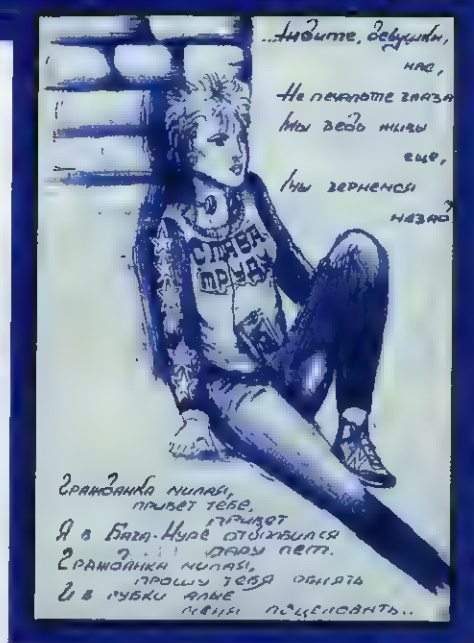 ...Ждите, девушки,
нас,
Не печальте глаза
Мы ведь живы
еще,
Мы вернемся
назад
СЛАВА
ТРУДУ
Гражданка милая,
привет тебе,
привет
Я в Бага-Нуре
пару лет.
Гражданка милая,
прошу тебя обнять
И в губки алые
меня поцеловать..